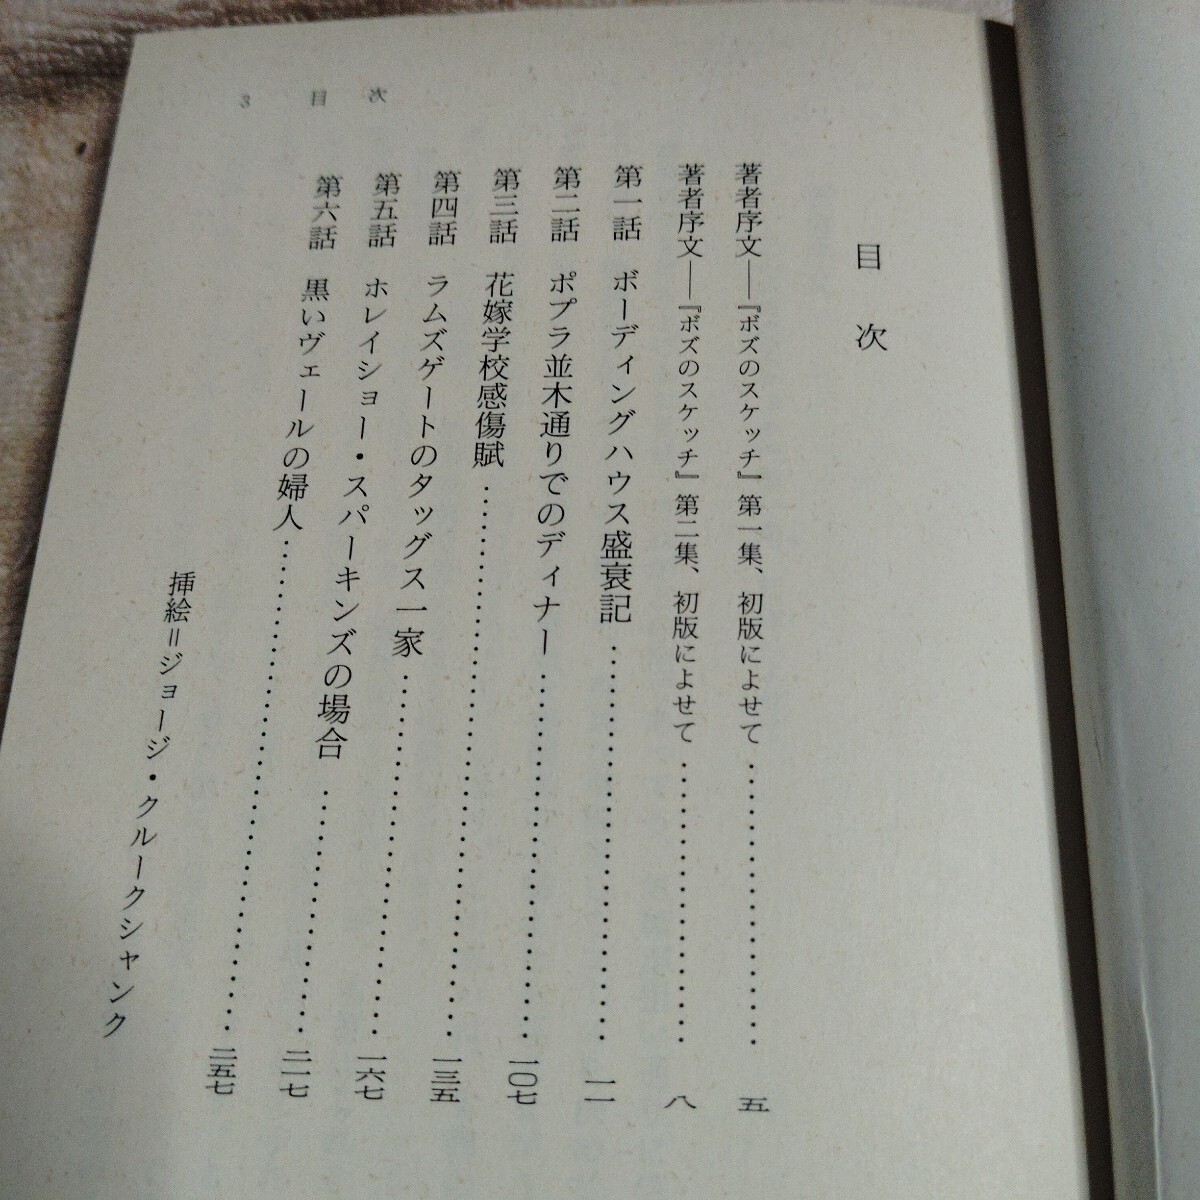 3　目　次
目　次
著者序文――『ボズのスケッチ』第一集、初版によせて……………………五
著者序文――『ボズのスケッチ』第二集、初版によせて……………………八
第一話　ボーディングハウス盛衰記……………………一一
第二話　ポプラ並木通りでのディナー……………………一〇七
第三話　花嫁学校感傷賦……………………一三五
第四話　ラムズゲートのタッグス一家……………………一六七
第五話　ホレイショー・スパーキンズの場合……………………二一七
第六話　黒いヴェールの婦人……………………二五七
挿絵＝ジョージ・クルークシャンク